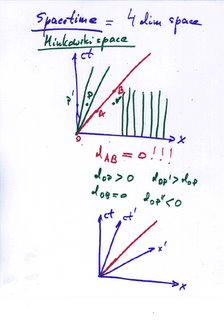 Spacetime = 4 dim space
Minkowski space
ct
P'
P
B
A
O
x
d_AB = 0 !!!
d_OP > 0 d_OP' > d_OP
d_OB = 0 d_OP' < 0
ct ct'
x'
x